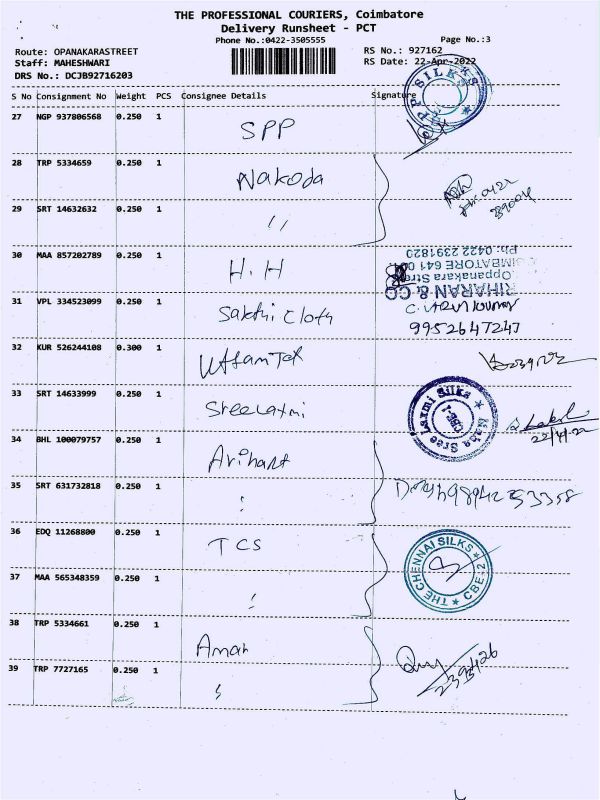 THE PROFESSIONAL COURIERS, Coimbatore
Delivery Runsheet - PCT
Phone No.:0422-3505555
Page No.:3
Route: OPANAKARASTREET
RS No.: 927162
Staff: MAHESHWARI
RS Date: 22-Apr-2022
DRS No.: DCJB92716203
S No Consignment No Weight PCS Consignee Details Signature
PP SILKS
27 NGP 937806568 0.250 1 SPP
28 TRP 5334659 0.250 1 Nakoda
Ph: 0422
29 SRT 14632632 0.250 1 "
30 MAA 857202789 0.250 1 H.H
RIHARAN & CO
Oppanakara Stre
IMBATORE 641 00
Ph: 0422 2391820
31 VPL 334523099 0.250 1 Sakthi Cloth
9952647247
32 KUR 526244108 0.300 1 Uttam Tex
33 SRT 14633999 0.250 1 Sree Laxmi
Maha Sree Laxmi Silks
22/4/22
34 BHL 100079757 0.250 1 Arihant
35 SRT 631732818 0.250 1 "
36 EDQ 11268800 0.250 1 TCS
THE CHENNAI SILKS CBE-1
37 MAA 565348359 0.250 1 "
38 TRP 5334661 0.250 1 Aman
39 TRP 7727165 0.250 1 "